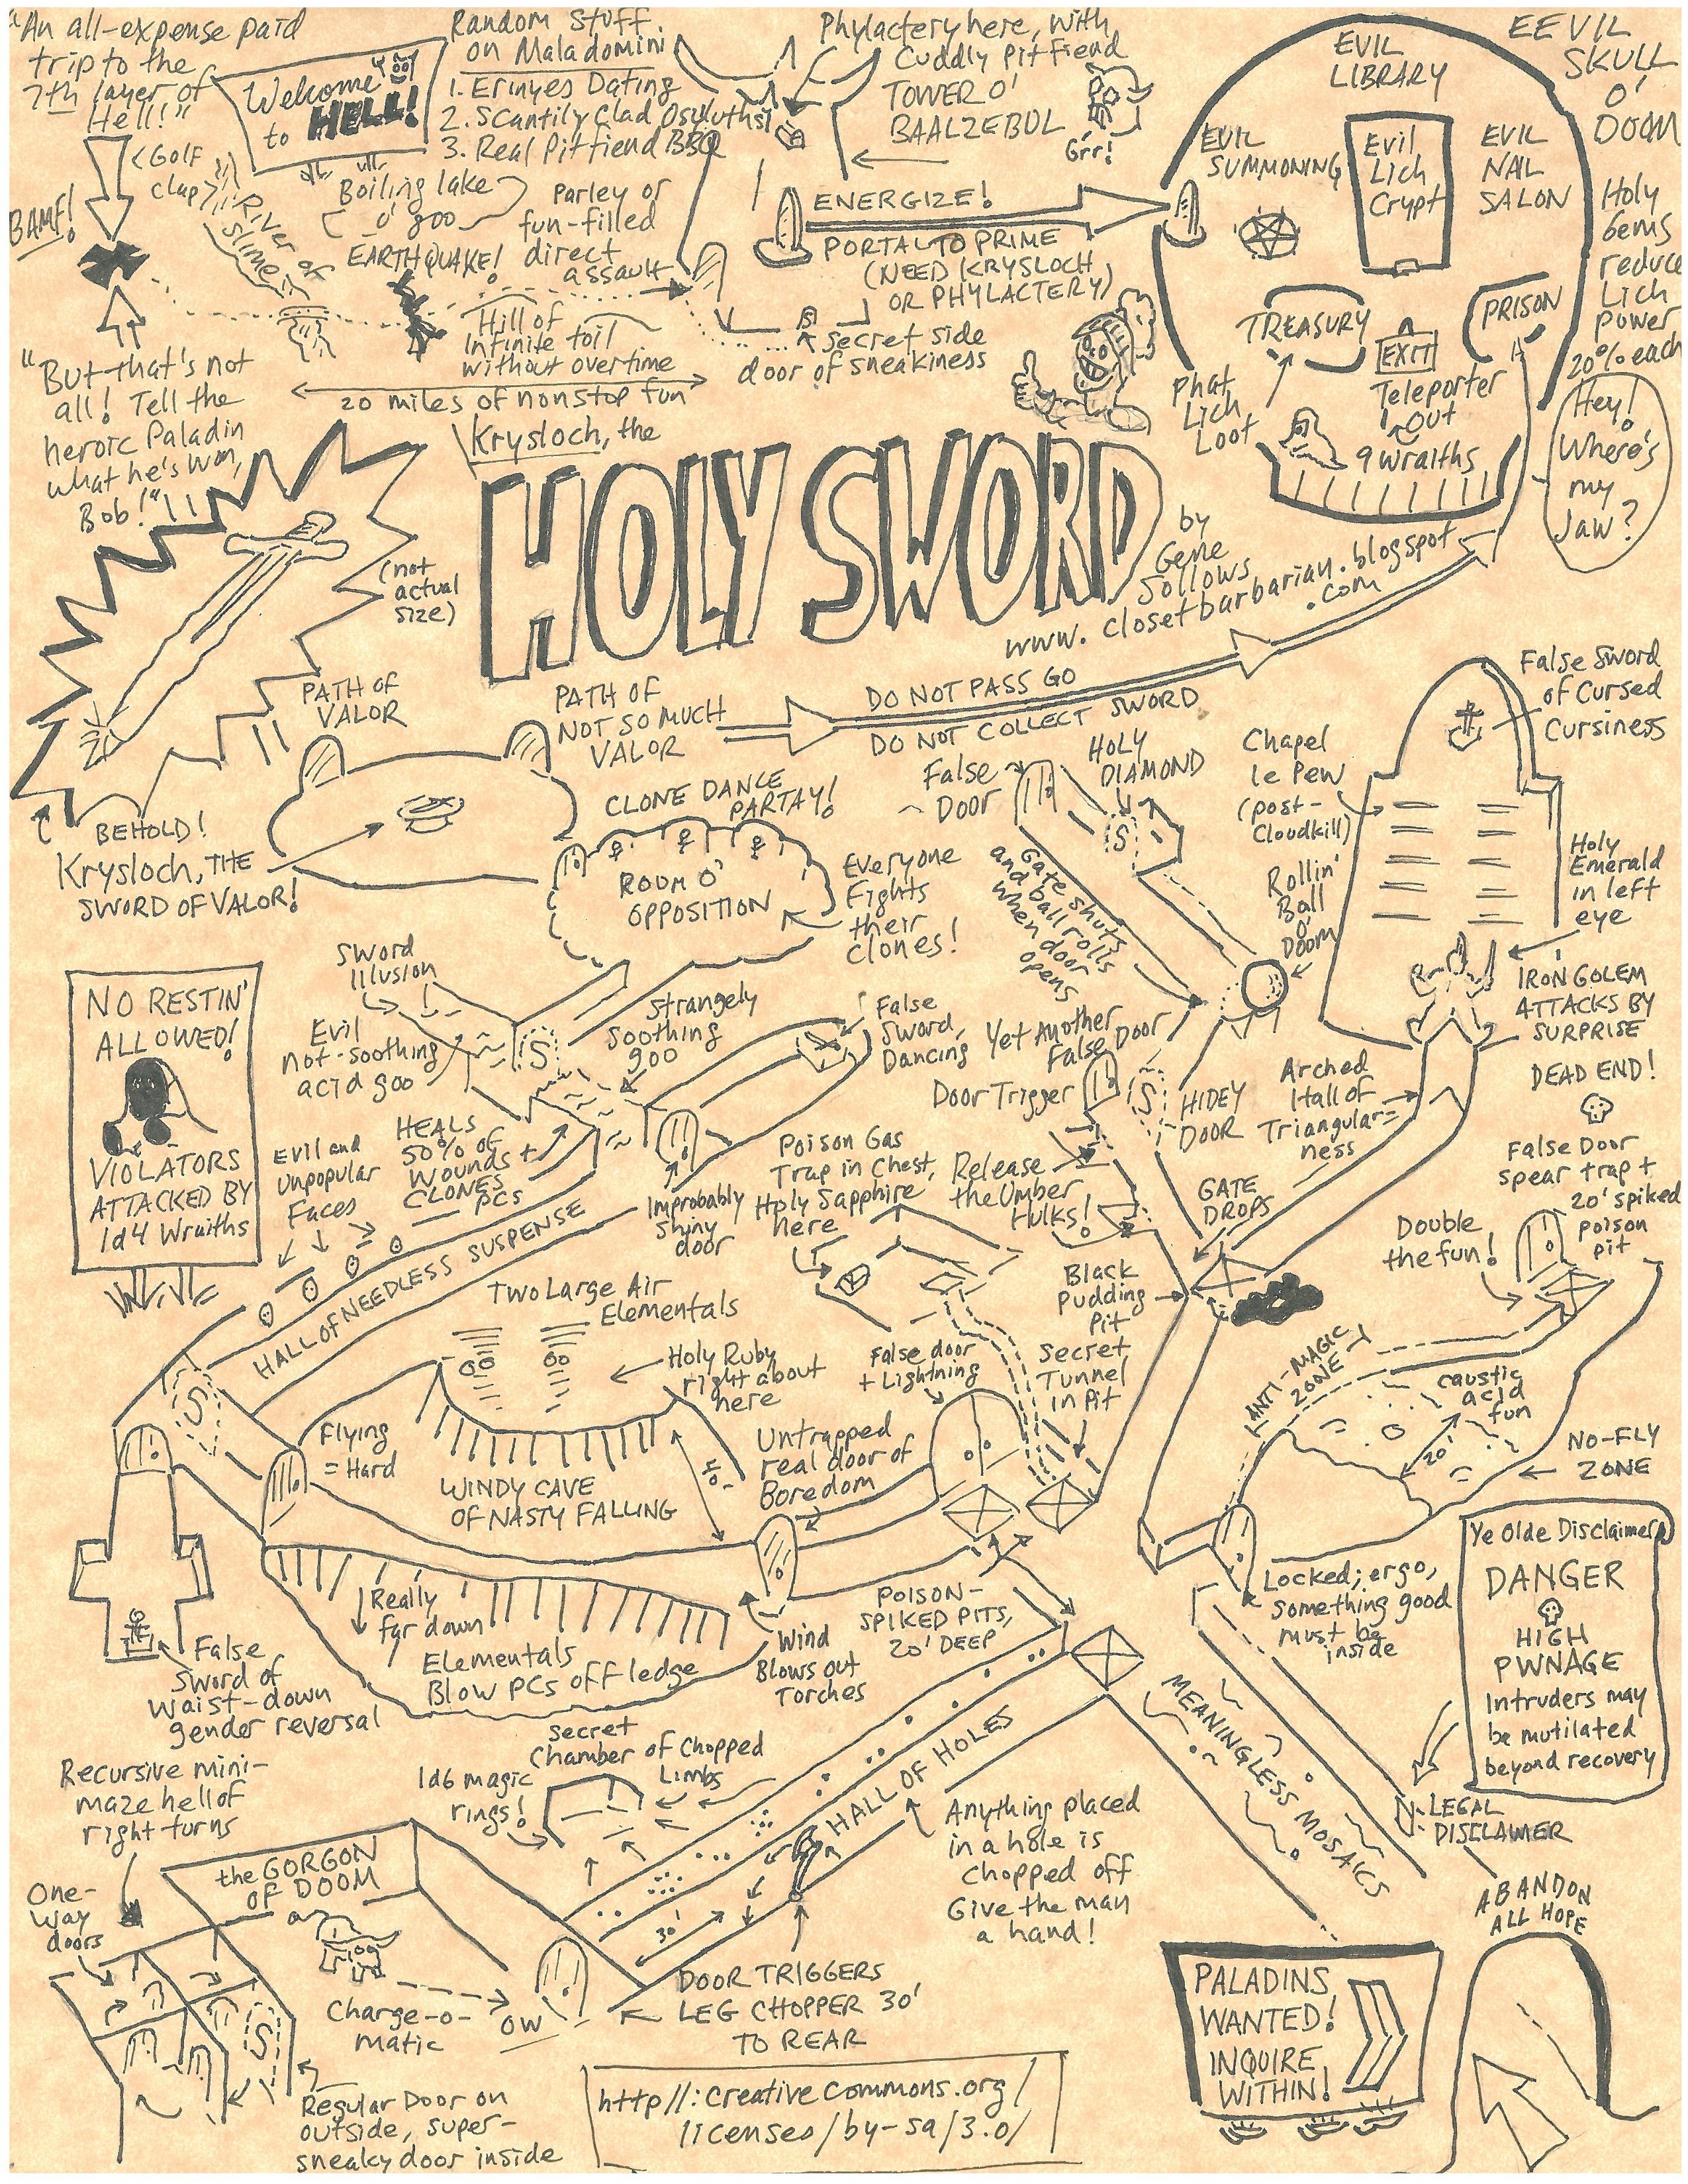 "An all-expense paid
trip to the
7th layer of
Hell!"
Welcome
to HELL!
Random Stuff
on Maladomini
1. Erinyes Dating
2. Scantily Clad Osyluths!
3. Real Pitfiend BBQ
Phylactery here, with
Cuddly Pit Fiend
TOWER O'
BAALZEBUL
Grr!
EVIL
LIBRARY
EVIL
SUMMONING
Evil
Lich
Crypt
EVIL
NAIL
SALON
EEVIL
SKULL
O'
DOOM
Holy
Gems
reduce
Lich
power
20% each
TREASURY
PRISON
EXIT
Teleporter
Out
Phat
Lich
Loot
9 wraiths
Hey!
Where's
my
Jaw?
<Golf
clap>
BAMF!
River of
Slime
Boiling lake
o' goo
EARTHQUAKE!
Parley or
fun-filled
direct
assault
Hill of
Infinite toil
without overtime
20 miles of nonstop fun
ENERGIZE!
PORTAL TO PRIME
(NEED KRYSLOCH
OR PHYLACTERY)
secret side
door of sneakiness
"But that's not
all! Tell the
heroic Paladin
what he's won,
Bob!"
(not
actual
size)
Krysloch, the
HOLY SWORD
by
Gene
Sollows
www.closetbarbarian.blogspot
.com
PATH OF
VALOR
PATH OF
NOT SO MUCH
VALOR
DO NOT PASS GO
DO NOT COLLECT SWORD
BEHOLD!
Krysloch, THE
SWORD OF VALOR!
CLONE DANCE
PARTAY!
ROOM O'
OPPOSITION
Everyone
Fights
their
clones!
False
Door
HOLY
DIAMOND
S
Gate shuts
and ball rolls
when door
opens
Rollin'
Ball
O'
Doom
Chapel
le Pew
(post-
Cloudkill)
False Sword
of Cursed
Cursiness
Holy
Emerald
in left
eye
IRON GOLEM
ATTACKS BY
SURPRISE
DEAD END!
NO RESTIN'
ALLOWED!
VIOLATORS
ATTACKED BY
1d4 Wraiths
Sword
Illusion
Evil
not-soothing
acid goo
S
Strangely
Soothing
goo
False
Sword,
Dancing
Yet Another
False Door
Door Trigger
S
HIDEY
DOOR
Arched
Hall of
Triangular-
ness
HEALS
50% of
Wounds
CLONES + PCS
Evil and
Unpopular
Faces
HALL OF NEEDLESS SUSPENSE
Improbably
shiny
door
Poison Gas
Trap in Chest,
Holy Sapphire
here
Release
the Umber
Hulks!
GATE
DROPS
False Door
spear trap +
20' spiked
poison
pit
Double
the fun!
Two Large Air
Elementals
Holy Ruby
right about
here
Black
Pudding
Pit
False door
+ Lightning
Secret
Tunnel
in Pit
ANTI-MAGIC
ZONE
caustic
acid
fun
20'
NO-FLY
ZONE
S
Flying
= Hard
WINDY CAVE
OF NASTY FALLING
40'
Untrapped
real door of
Boredom
Really
far down
Elementals
Blow PCs off ledge
Wind
Blows out
Torches
POISON-
SPIKED PITS,
20' DEEP
Locked; ergo,
something good
must be
inside
Ye Olde Disclaimer
DANGER
HIGH
PWNAGE
Intruders may
be mutilated
beyond recovery
LEGAL
DISCLAIMER
False
Sword of
Waist-down
gender reversal
MEANINGLESS MOSAICS
Secret
Chamber of Chopped
Limbs
1d6 magic
rings!
HALL OF HOLES
Anything placed
in a hole is
chopped off
Give the man
a hand!
30'
Recursive mini-
maze hell of
right turns
the GORGON
OF DOOM
One-
Way
doors
Charge-o-
matic
OW
S
DOOR TRIGGERS
LEG CHOPPER 30'
TO REAR
Regular Door on
outside, super-
sneaky door inside
http//:creativecommons.org/
licenses/by-sa/3.0/
PALADINS
WANTED!
INQUIRE
WITHIN!
ABANDON
ALL HOPE